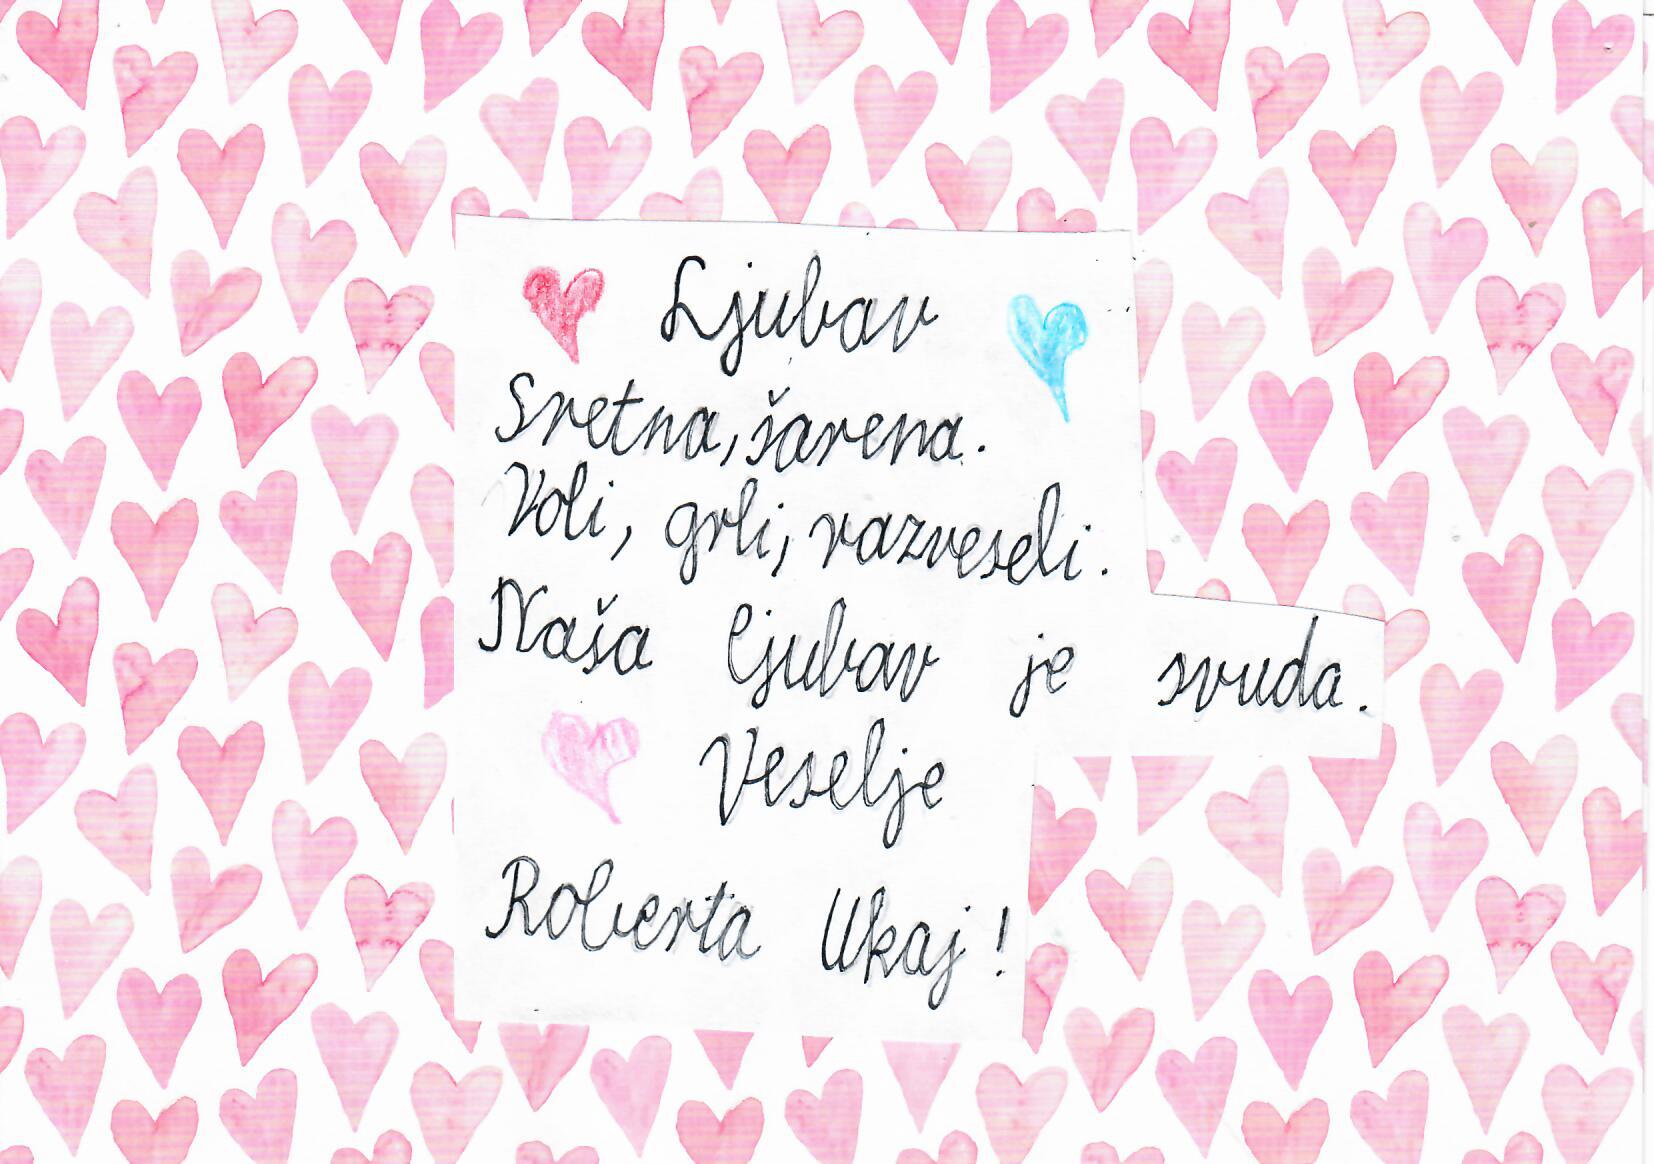 Ljubav
Sretna, šarena.
Voli, grli, razveseli.
Naša ljubav je svuda.
Veselje
Roberta Ukaj!